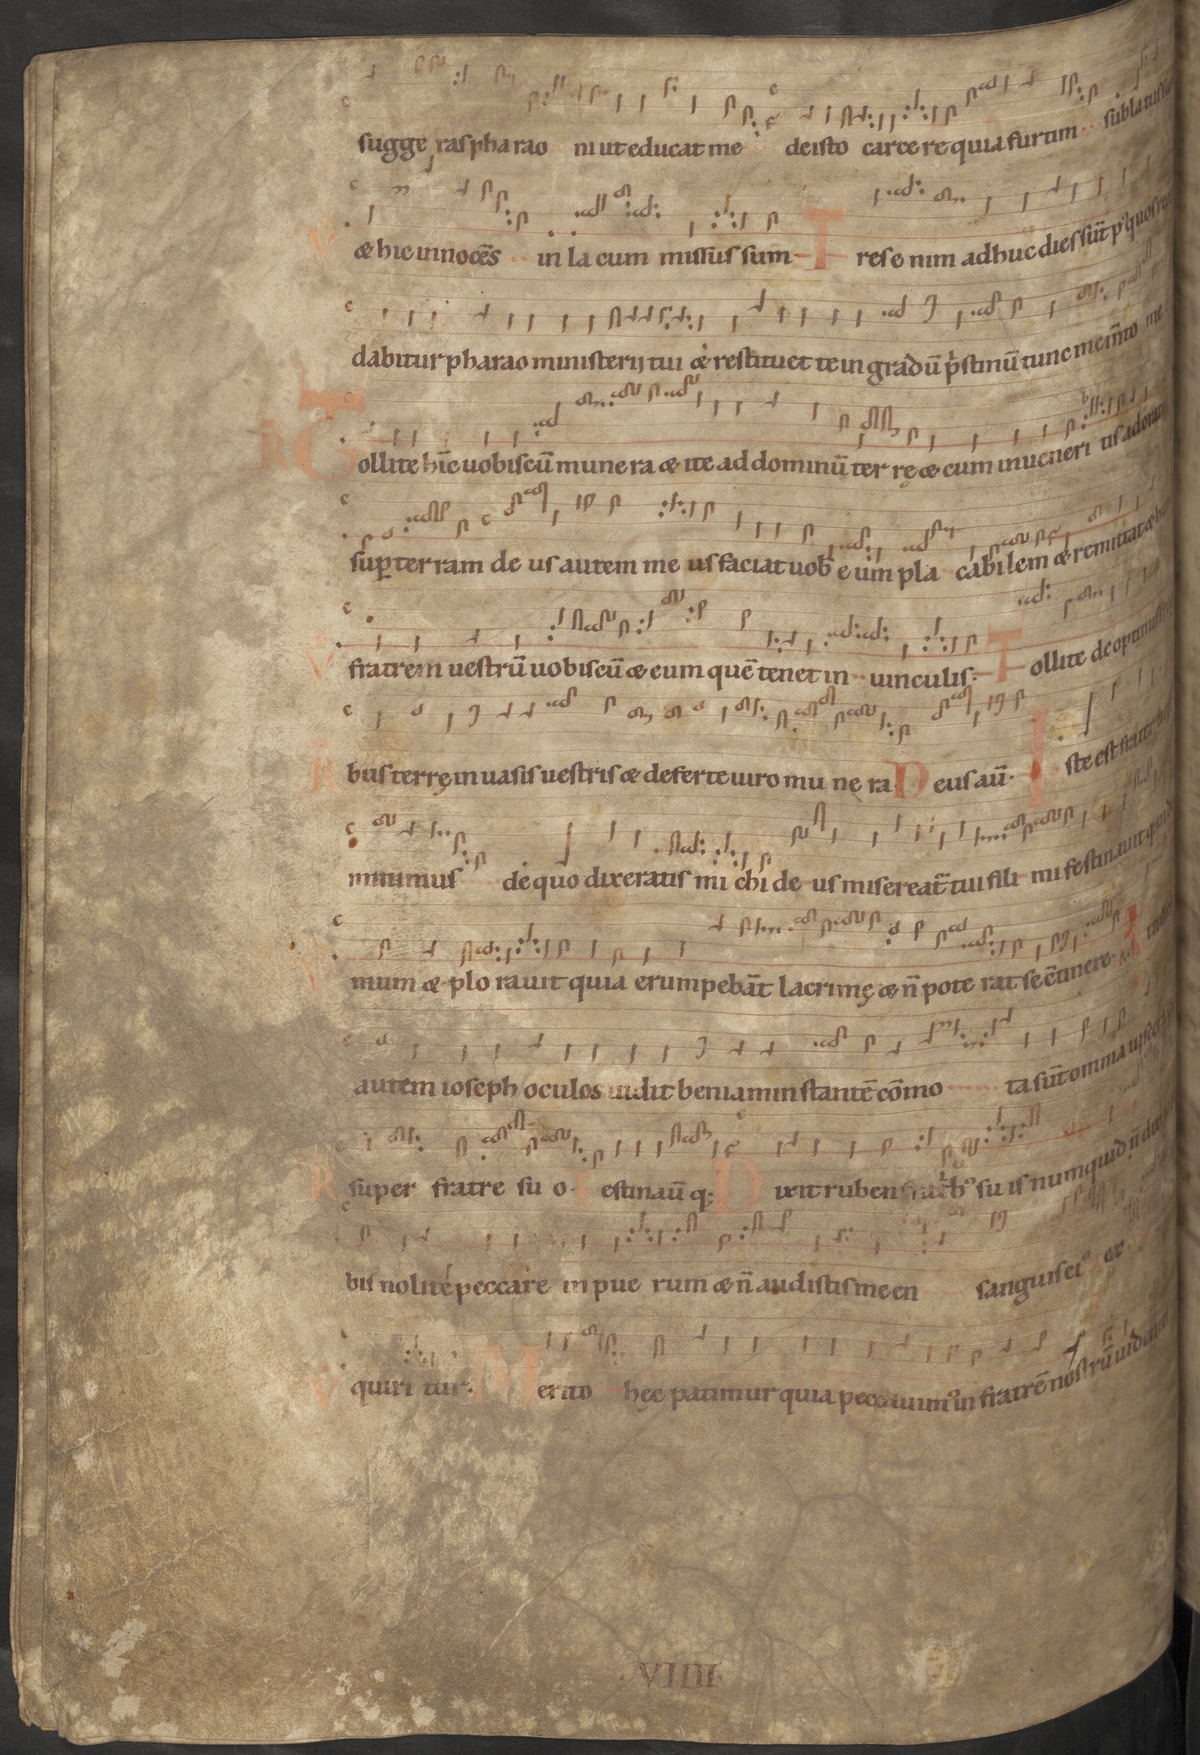 sugge ras pharao ni ut educat me de isto carcere quia furtim sublatus
V æ hic innocēs in lacum missus sum T res enim adhuc dies sūt
dabitur pharao ministerij tui æ restituet te in gradū p̄stinū tunc mem̄to me
R T ollite hīc uobiscū munera æ ite ad dominū terrę æ cum inueneri tis adorate
sup̄ terram deus autem meus faciat uob eum pla cabilem æ remittat
V fratrem uestrū uobiscū æ eum quē tenet in uinculis. T ollite de optimis
R bus terrę in uasis uestris æ deferte uiro mu ne ra D eus aū. I ste est frater
minimus de quo dixeratis mi chi deus misereat̄ tui fili mi festinauit
V mum æ plo rauit quia erumpebāt lacrimę æ n̄ pote rat se c̄tinere.
autem ioseph oculos uidit beniamin stantē cōmo ta sūt omnia
R super fratre su o. F estinaū q; D ixit ruben fratb9 su is numquid n̄
bis nolite peccare in pue rum æ n̄ audistis me en sanguis ei9 ex
V quiri tur. M erito hęc patimur quia peccauim9 in fratrē nostrū
VIIII